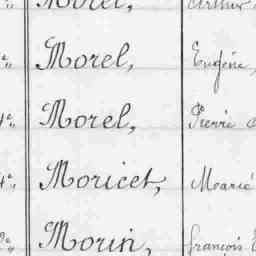 Morel, Arthur
Morel, Eugène,
Morel, Pierre
Moricet, Marie
Morin, François